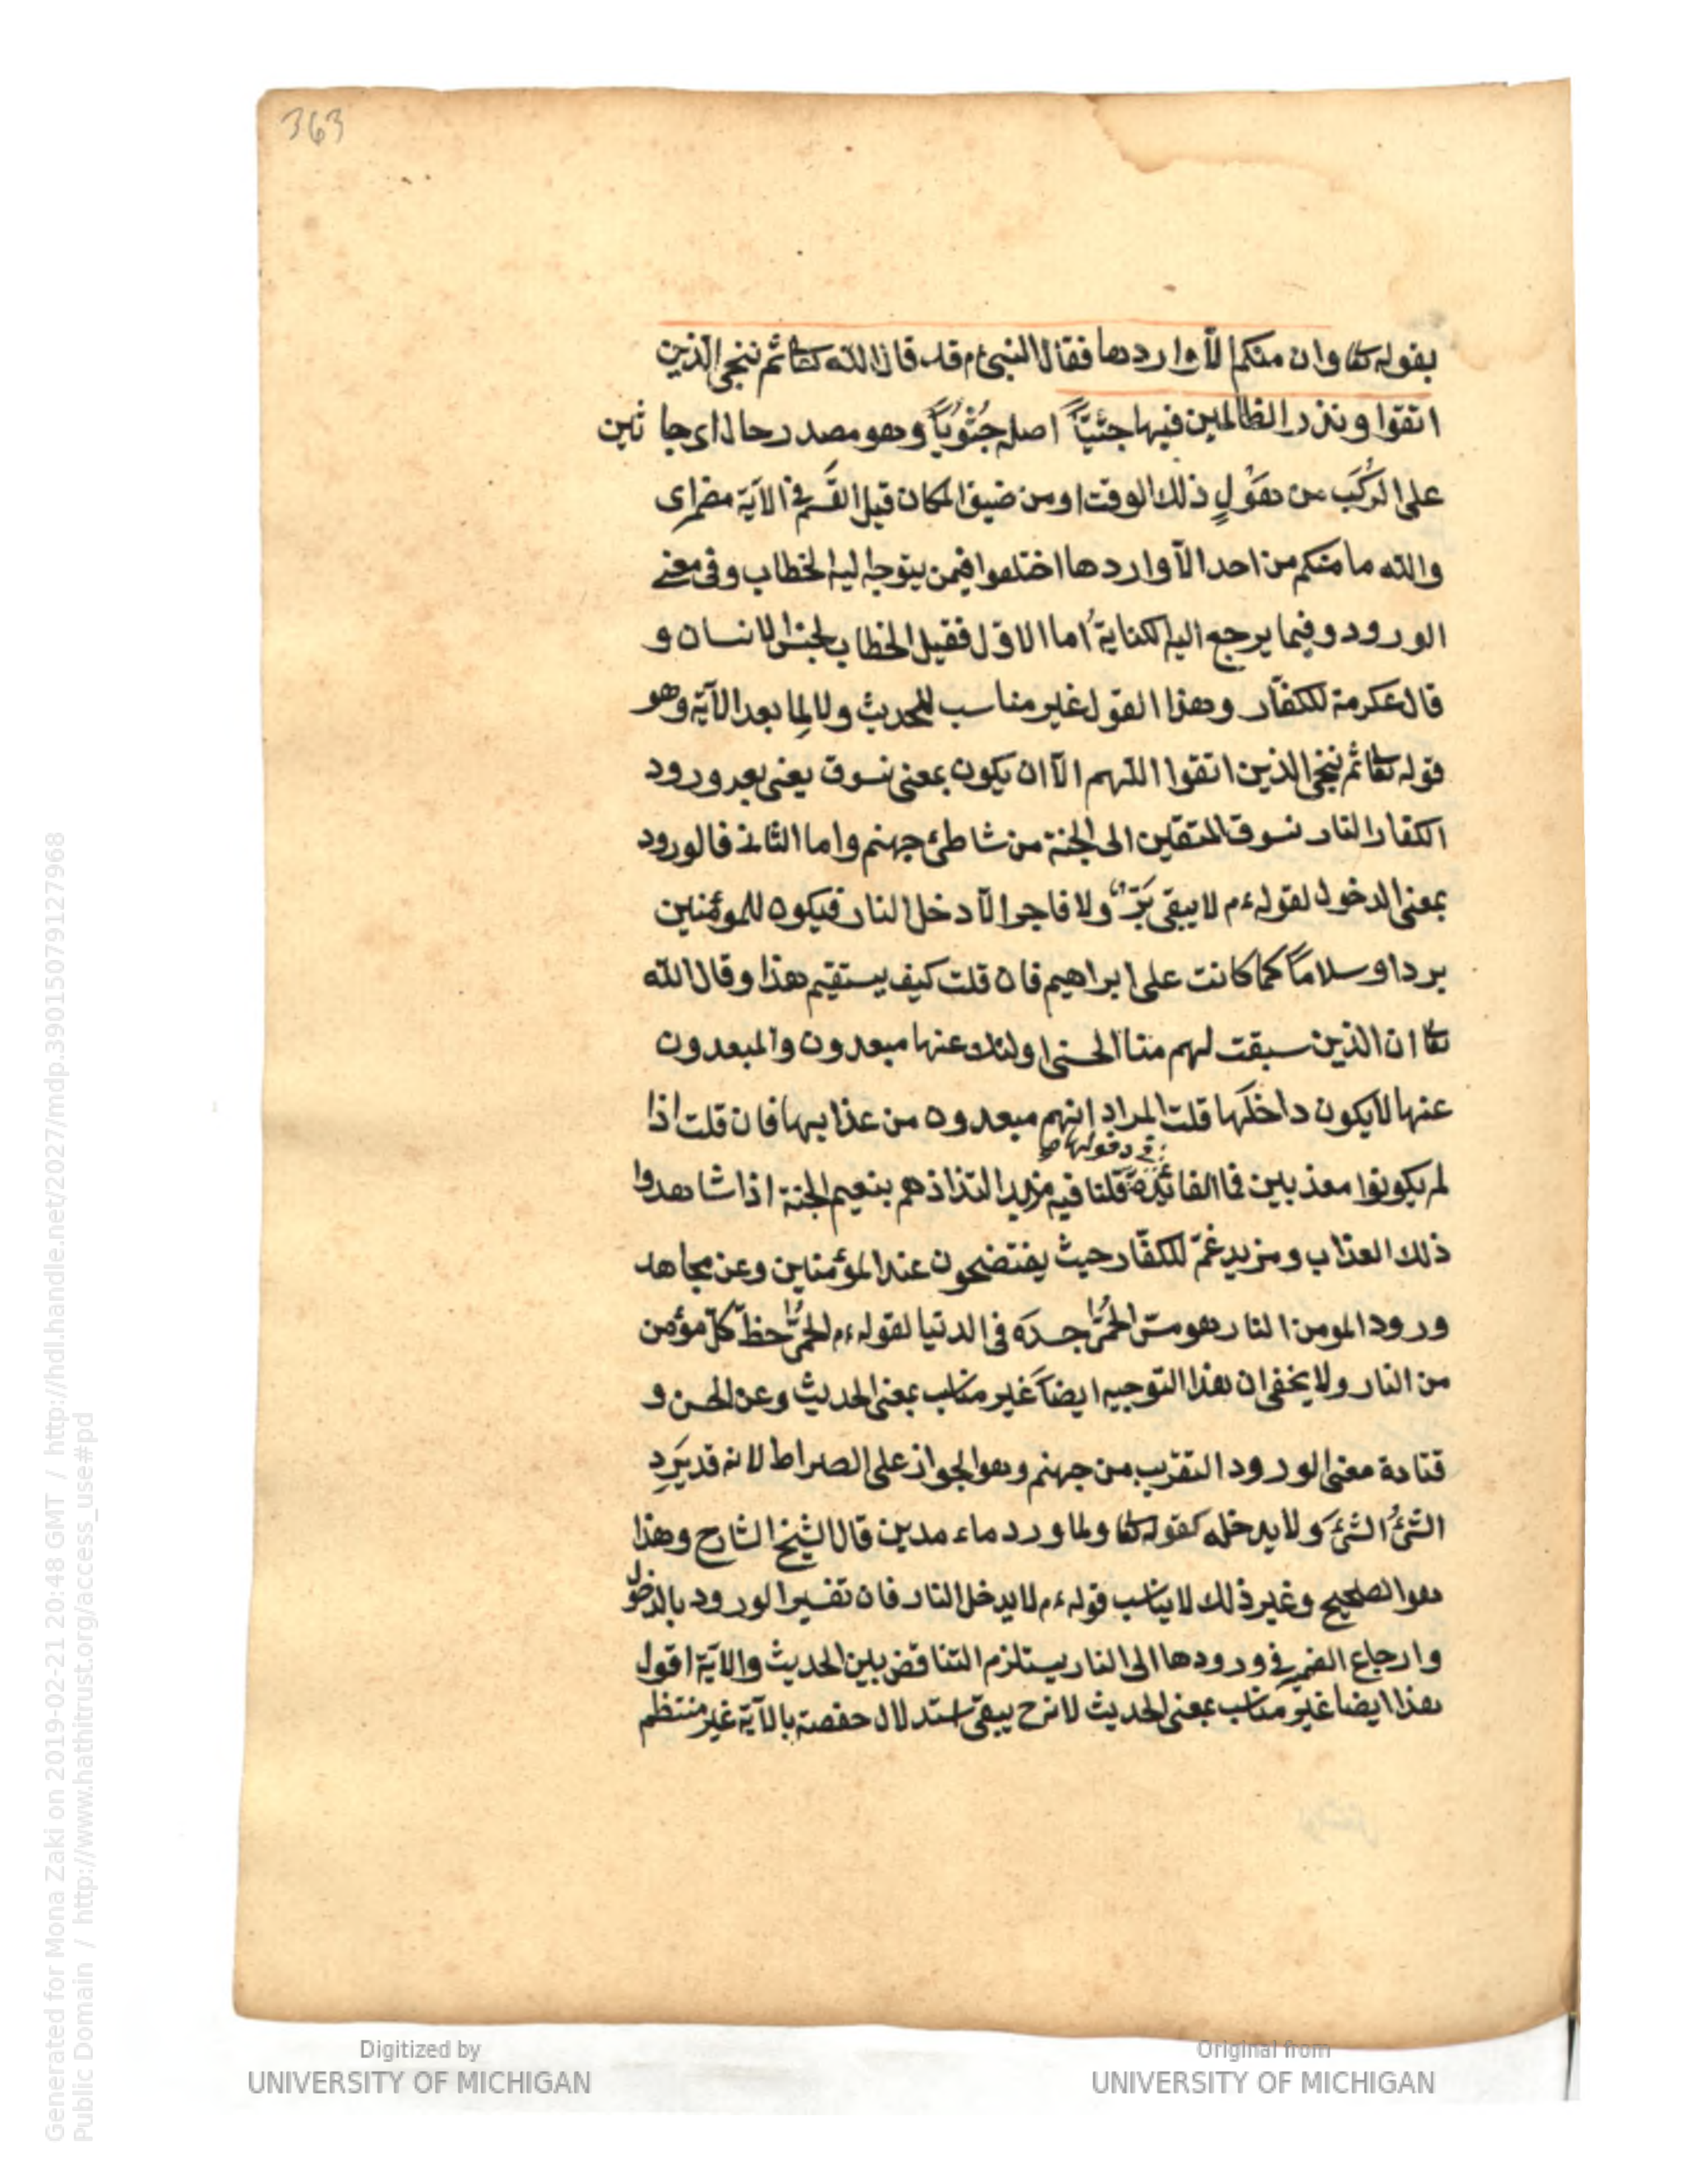 363
بقوله تعا وان منكم الّا واردها فقال النبى ءم قد قال الله تعا ثم ننجى الذين
اتقوا ونذر الظالمين فيها جثيّاً اصله جُثُوياً وهو مصدر حال اى جا ثين
على الرُكَب من هَوْلِ ذلك الوقت او من ضيق المكان قيل القَسَم فى الآية مضمر اى
والله ما منكم من احد الّا واردها اختلفوا فيمن يتوجه اليه الخطاب وفى معنى
الورود وفيما يرجع اليه الكناية اما الاوّل فقيل الخطاب لجنس الانسان و
قال عكرمة للكفّار وهذا القول غير مناسب للحديث ولا لِما بعد الآية وهو
قوله تعا ثم ننجى الذين اتقوا اللّهم الّا ان يكون بمعنى نسوق يعنى بعد ورود
الكفار النار نسوق المتقين الى الجنة من شاطئ جهنم واما الثانى فالورود
بمعنى الدخول لقوله ءم لا يبقى بَرّ ولا فاجر الّا دخل النار فيكون للمؤمنين
بردا وسلاماً كما كانت على ابراهيم فان قلت كيف يستقيم هذا وقال الله
تعا ان الذين سبقت لهم منا الحسنى اولئك عنها مبعدون والمبعدون
عنها لا يكون داخلَها قلت المراد انهم مبعدون من عذابها فان قلت اذا
فى دخولها صح
لم يكونوا معذبين فما الفائدة قلنا فيه مزيد التذاذهم بنعيم الجنة اذا شاهدوا
ذلك العذاب ومزيد غمّ للكفّار حيث يفتضحون عند المؤمنين وعن مجاهد
ورود المومن النار هو مسّ الحُمّى جسدَه فى الدنيا لقوله ءم الحُمّى حظّ كلّ مؤمن
من النار ولا يخفى ان هذا التوجيه ايضاً غير مناسب بمعنى الحديث وعن الحسن و
قتادة معنى الورود التقرّب من جهنم وهو الجواز على الصراط لانه قد يَرِد
الشئُ الشئَ ولا يدخله كقوله تعا ولما ورد ماء مدين قال الشيخ الشارح وهذا
هو الصحيح وغير ذلك لا يناسب قوله ءم لا يدخل النار فان تفسير الورود بالدخول
وارجاع الضمير فى ورودها الى النار يستلزم التناقض بين الحديث والآية اقول
هذا ايضا غير مناسب بمعنى الحديث لانه ح يبقى استدلال حفصة بالآية غير منتظم
Generated for Mona Zaki on 2019-02-21 20:48 GMT / http://hdl.handle.net/2027/mdp.39015079127968
Public Domain / http://www.hathitrust.org/access_use#pd
Digitized by
UNIVERSITY OF MICHIGAN
Original from
UNIVERSITY OF MICHIGAN